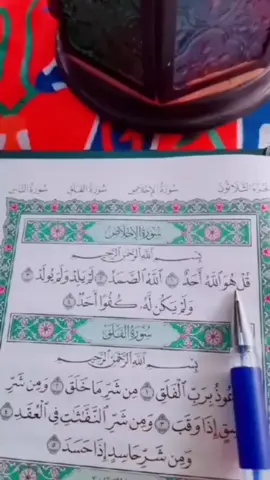 الجزء الثلاثون سورة الإخلاص سورة الفلق سورة الناس
سورة الإخلاص
بسم الله الرحمن الرحيم
قُلْ هُوَ ٱللَّهُ أَحَدٌ ١ ٱللَّهُ ٱلصَّمَدُ ٢ لَمْ يَلِدْ وَلَمْ يُولَدْ ٣
وَلَمْ يَكُن لَّهُۥ كُفُوًا أَحَدٌۢ ٤
سورة الفلق
بسم الله الرحمن الرحيم
عُوذُ بِرَبِّ ٱلْفَلَقِ ١ مِن شَرِّ مَا خَلَقَ ٢ وَمِن شَرِّ
سِقٍ إِذَا وَقَبَ ٣ وَمِن شَرِّ ٱلنَّفَّـٰثَـٰتِ فِى ٱلْعُقَدِ ٤
وَمِن شَرِّ حَاسِدٍ إِذَا حَسَدَ ٥